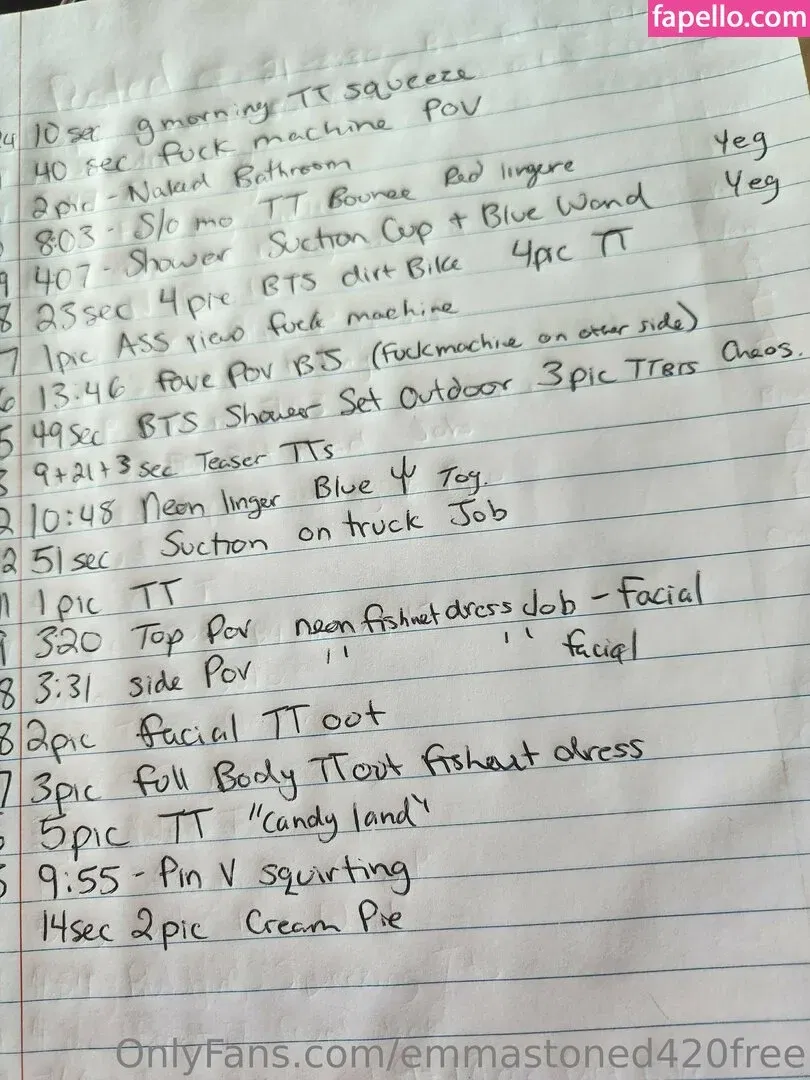 fapello.com
24 10 sec gmorning TT squeeze
40 sec fuck machine POV
2pic - Naked Bathroom
8:03 - Slo mo TT Bounce Red lingere Yeg
9 407 - Shower Suction Cup + Blue Wand Yeg
8 23sec 4pic BTS dirt Bike 4pic TT
7 1pic ASS view fuck machine
6 13:46 fove POV BJ (fuckmachine on other side)
5 49sec BTS Shower Set Outdoor 3pic TTBTS Chaos.
3 9+21+3 sec Teaser TTs
2 10:48 Neon linger Blue Toy.
2 51 sec Suction on truck Job
1 1pic TT
320 Top Pov neon fishnet dress Job - facial
8 3:31 side Pov " " facial
8 2pic facial TT oot
7 3pic full Body TT out fishent dress
5pic TT "Candy land"
5 9:55 - Pin V squirting
14sec 2pic Cream Pie
OnlyFans.com/emmastoned420free